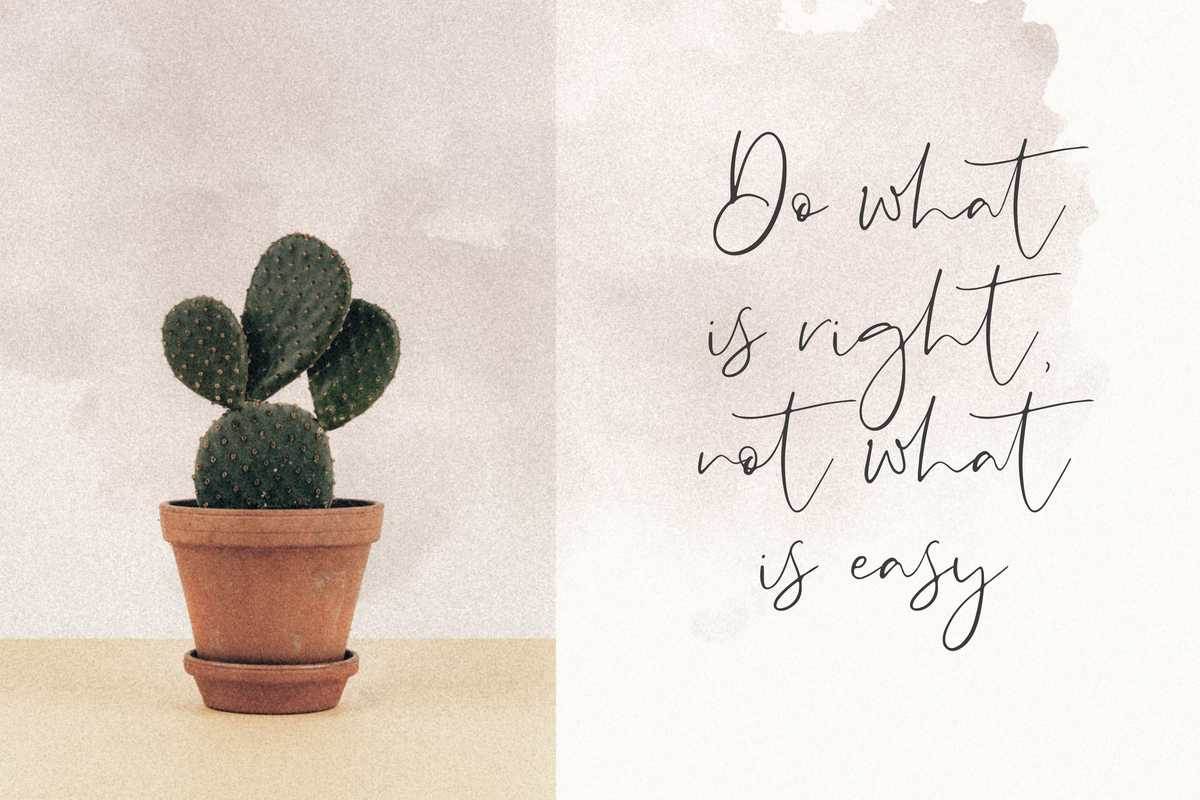 Do what
is right,
not what
is easy